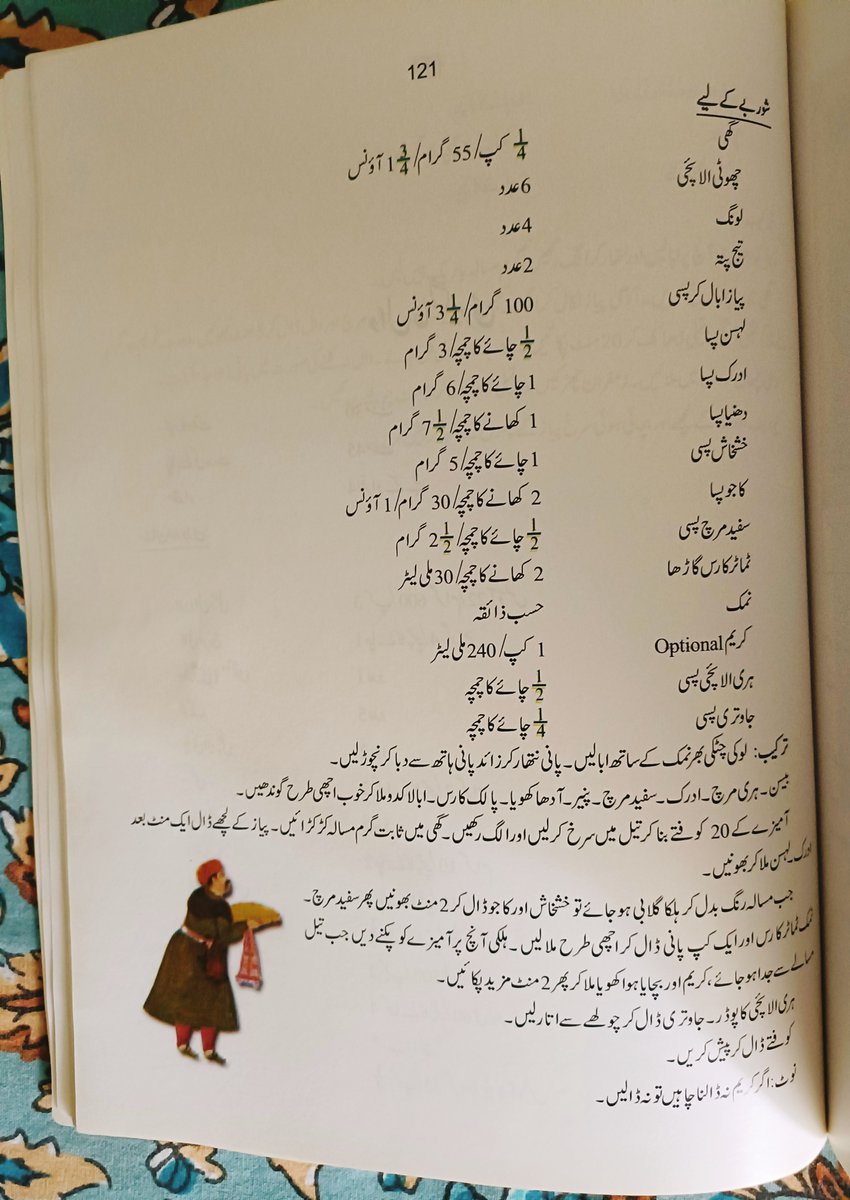 121
شوربے کے لیے
گھی 1/4 کپ/ 55 گرام/ 1 3/4 آؤنس
چھوٹی الائچی 6 عدد
لونگ 4 عدد
تیج پتہ 2 عدد
پیاز ابال کر پسی 100 گرام/ 3 1/4 آؤنس
لہسن پسا 1/2 چائے کا چمچہ/ 3 گرام
ادرک پسا 1 چائے کا چمچہ/ 6 گرام
دھنیا پسا 1 کھانے کا چمچہ/ 7 1/2 گرام
خشخاش پسی 1 چائے کا چمچہ/ 5 گرام
کاجو پسا 2 کھانے کا چمچہ/ 30 گرام/ 1 آؤنس
سفید مرچ پسی 1/2 چائے کا چمچہ/ 2 1/2 گرام
ٹماٹر کا رس گاڑھا 2 کھانے کا چمچہ/ 30 ملی لیٹر
نمک حسب ذائقہ
کریم Optional 1 کپ/ 240 ملی لیٹر
ہری الائچی پسی 1/2 چائے کا چمچہ
جاوتری پسی 1/4 چائے کا چمچہ
ترکیب: لوکی چٹکی بھر نمک کے ساتھ ابالیں۔ پانی نتھار کر زائد پانی ہاتھ سے دبا کر نچوڑ لیں۔
بیسن۔ ہری مرچ۔ ادرک۔ سفید مرچ۔ پنیر۔ آدھا کھویا۔ پالک کا رس۔ ابالا کدو ملا کر خوب اچھی طرح گوندھیں۔
آمیزے کے 20 کوفتے بنا کر تیل میں سرخ کر لیں اور الگ رکھیں۔ گھی میں ثابت گرم مسالہ کڑکڑائیں۔ پیاز کے لچھے ڈال ایک منٹ بعد
ادرک۔ لہسن ملا کر بھونیں۔
جب مسالہ رنگ بدل کر ہلکا گلابی ہو جائے تو خشخاش اور کاجو ڈال کر 2 منٹ بھونیں پھر سفید مرچ۔
نمک ٹماٹر کا رس اور ایک کپ پانی ڈال کر اچھی طرح ملا لیں۔ ہلکی آنچ پر آمیزے کو پکنے دیں جب تیل
مسالے سے جدا ہو جائے، کریم اور بچایا ہوا کھویا ملا کر پھر 2 منٹ مزید پکائیں۔
ہری الائچی کا پوڈر۔ جاوتری ڈال کر چولھے سے اتار لیں۔
کوفتے ڈال کر پیش کریں۔
نوٹ: اگر کریم نہ ڈالنا چاہیں تو نہ ڈالیں۔